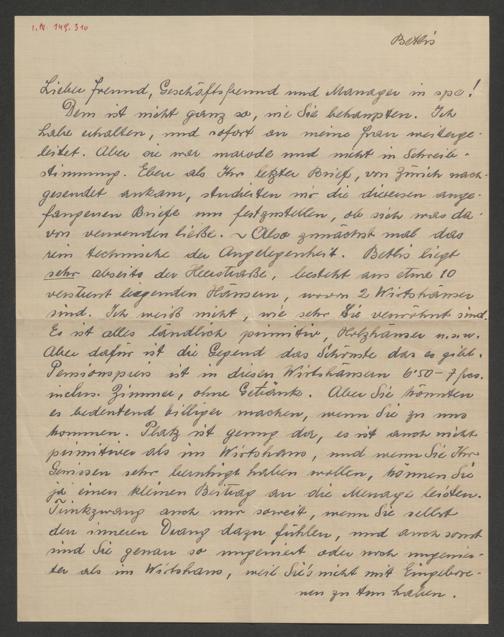 I.N. 149.310
Betlis
Lieber Freund, Geschäftsfreund und Manager in spe!
Dem ist nicht ganz so, wie Sie behaupten. Ich
habe erhalten, und sofort an meine Frau weiterge-
leitet. Aber sie war marode und nicht in Schreib-
stimmung. Eben als Ihr letzter Brief, von Zürich nach-
gesendet ankam, studierten wir die diversen ange-
fangenen Briefe um festzustellen, ob sich was da-
von verwenden ließe. ~ Also zunächst mal das
rein technische der Angelegenheit. Betlis liegt
sehr abseits der Heerstraße, besteht aus etwa 10
verstreut liegenden Häusern, wovon 2 Wirtshäuser
sind. Ich weiß nicht, wie sehr Sie verwöhnt sind.
Es ist alles ländlich primitiv, Holzhäuser u.s.w.
Aber dafür ist die Gegend das Schönste das es gibt.
Pensionspreis ist in diesen Wirtshäusern 6'50–7 frcs.
inclus. Zimmer, ohne Getränke. Aber Sie könnten
es bedeutend billiger machen, wenn Sie zu uns
kommen. Platz ist genug da, es ist auch nicht
primitiver als im Wirtshaus, und wenn Sie Ihr
Gewissen sehr beruhigt haben wollen, können Sie
ja einen kleinen Beitrag an die Menage leisten.
Trinkzwang auch nur soweit, wenn Sie selbst
den inneren Drang dazu fühlen, und auch sonst
sind Sie genau so ungeniert oder noch ungenier-
ter als im Wirtshaus, weil Sie's nicht mit Eingebore-
nen zu tun haben.